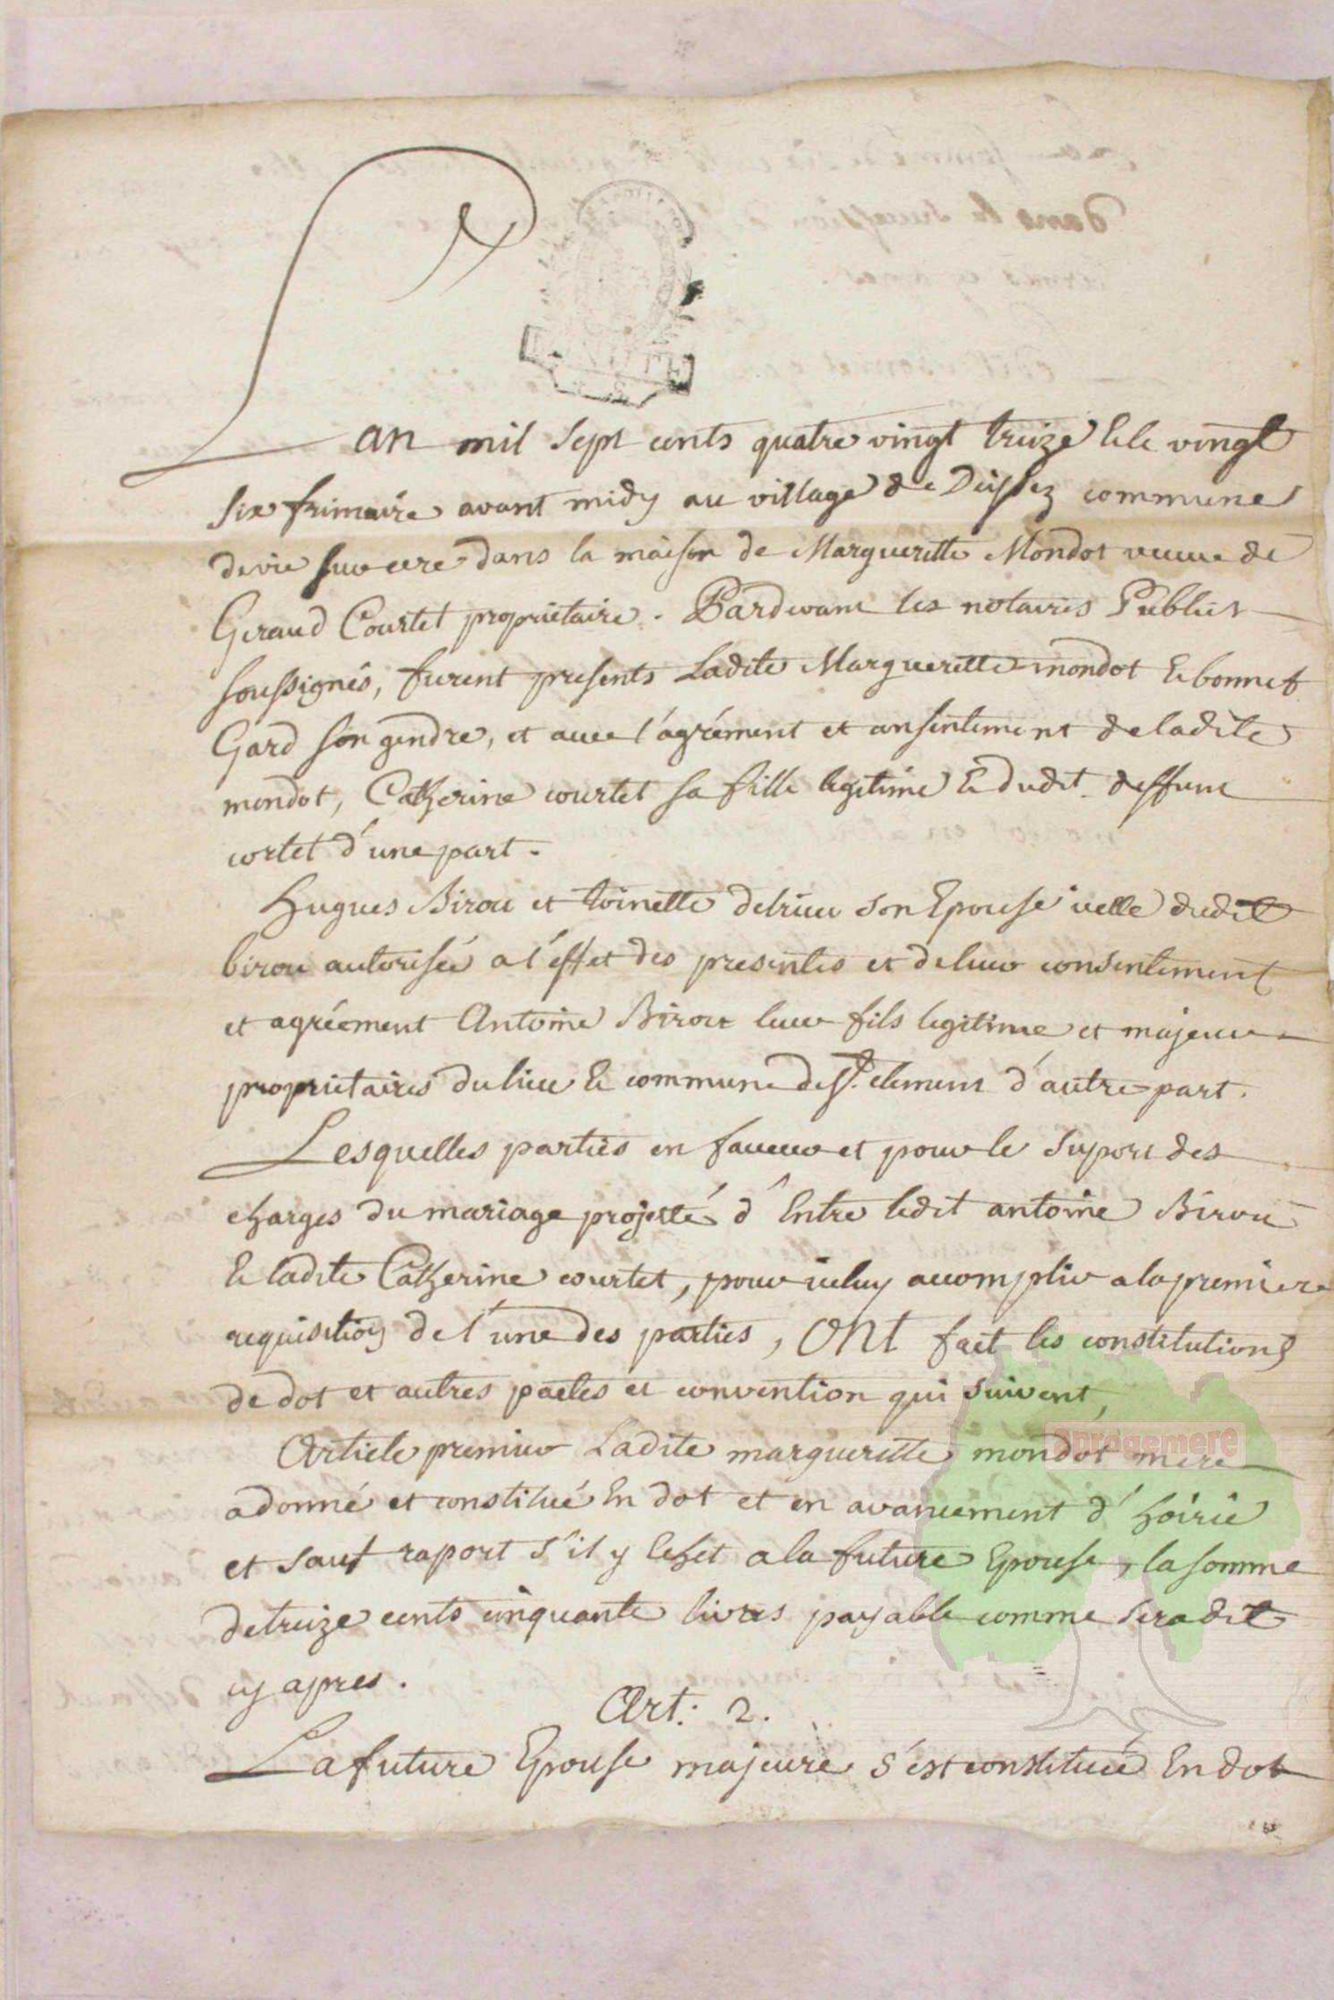 Lan mil sept cents quatre vingt treize & le vingt
six frimaire avant midy au village de Deissez commune
de vic sur cere dans la maison de Margueritte Mondot veuve de
Geraud Courtet propriétaire. Pardevant les notaires Publics
soussignés, furent presents Ladite Margueritte mondot & bonnet
Gard son gendre, et avec l'agrément et consentement de ladite
mondot, Catherine courtet sa fille legitime & dudit deffunt
cortet d'une part.
Hugues Birou et toinette delrieu son Epouse icelle dudit
birou autorisée a l'effet des presentes et de leur consentement
et agréement Antoine Birou leur fils legitime et majeur
propriétaires du lieu & commune de St. clement d'autre part.
Lesquelles parties en faveur et pour le suport des
charges du mariage projetté d'Entre ledit antoine Birou
& ladite Catherine courtet, pour iceluy accomplir a la premiere
requisition de l'une des parties, ONt fait les constitutions
de dot et autres pactes et convention qui suivent,
Article premier Ladite margueritte mondot mere
a donné et constitué En dot et en avancement d'hoirie
et sauf raport s'il y échet a la future Epouse, la somme
de treize cents cinquante livres payable comme sera dit
cy apres.
Art: 2.
La future Epouse majeure s'est constituée En dot
aprogemere